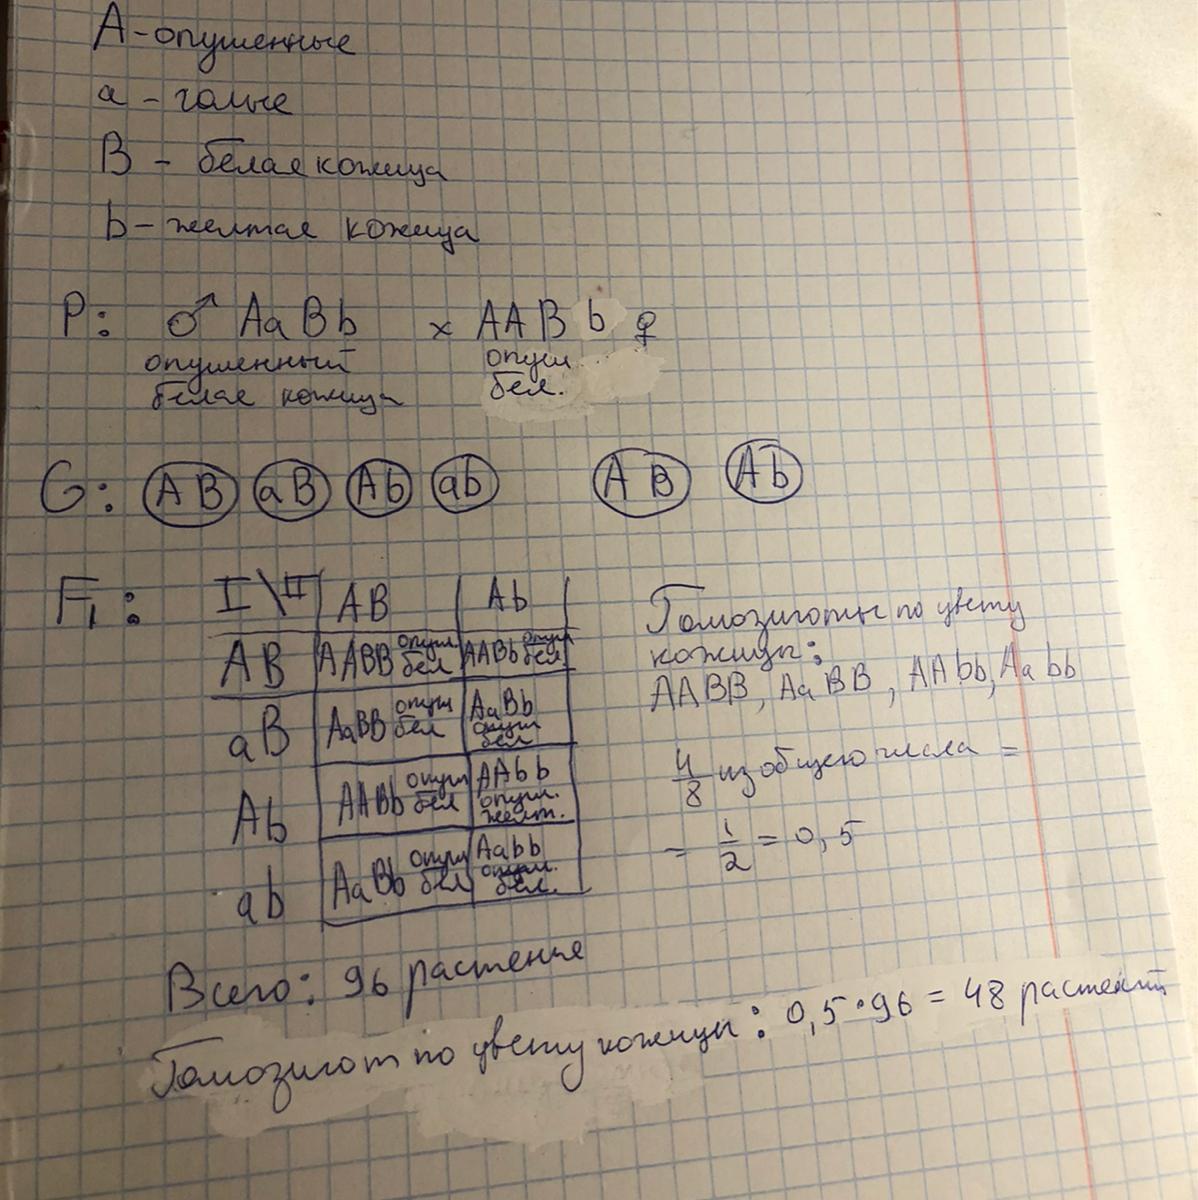 A - опушенные
a - голые
B - белая кожица
b - желтая кожица
P: ♂ AaBb × AABb ♀
опушенный опуш.
белая кожица бел.
G: AB aB Ab ab AB Ab
F1: I\II AB Ab
AB AABB опуш. бел AABb опуш бел
aB AaBB опуш бел AaBb опуш бел
Ab AABb опуш бел AAbb опуш. желт.
ab AaBb опуш бел Aabb опуш. бел.
Гомозиготы по цвету
кожицы:
AABB, AaBB, AAbb, Aabb
4/8 из общего числа =
= 1/2 = 0,5
Всего: 96 растенья
Гомозигот по цвету кожицы: 0,5·96 = 48 растений